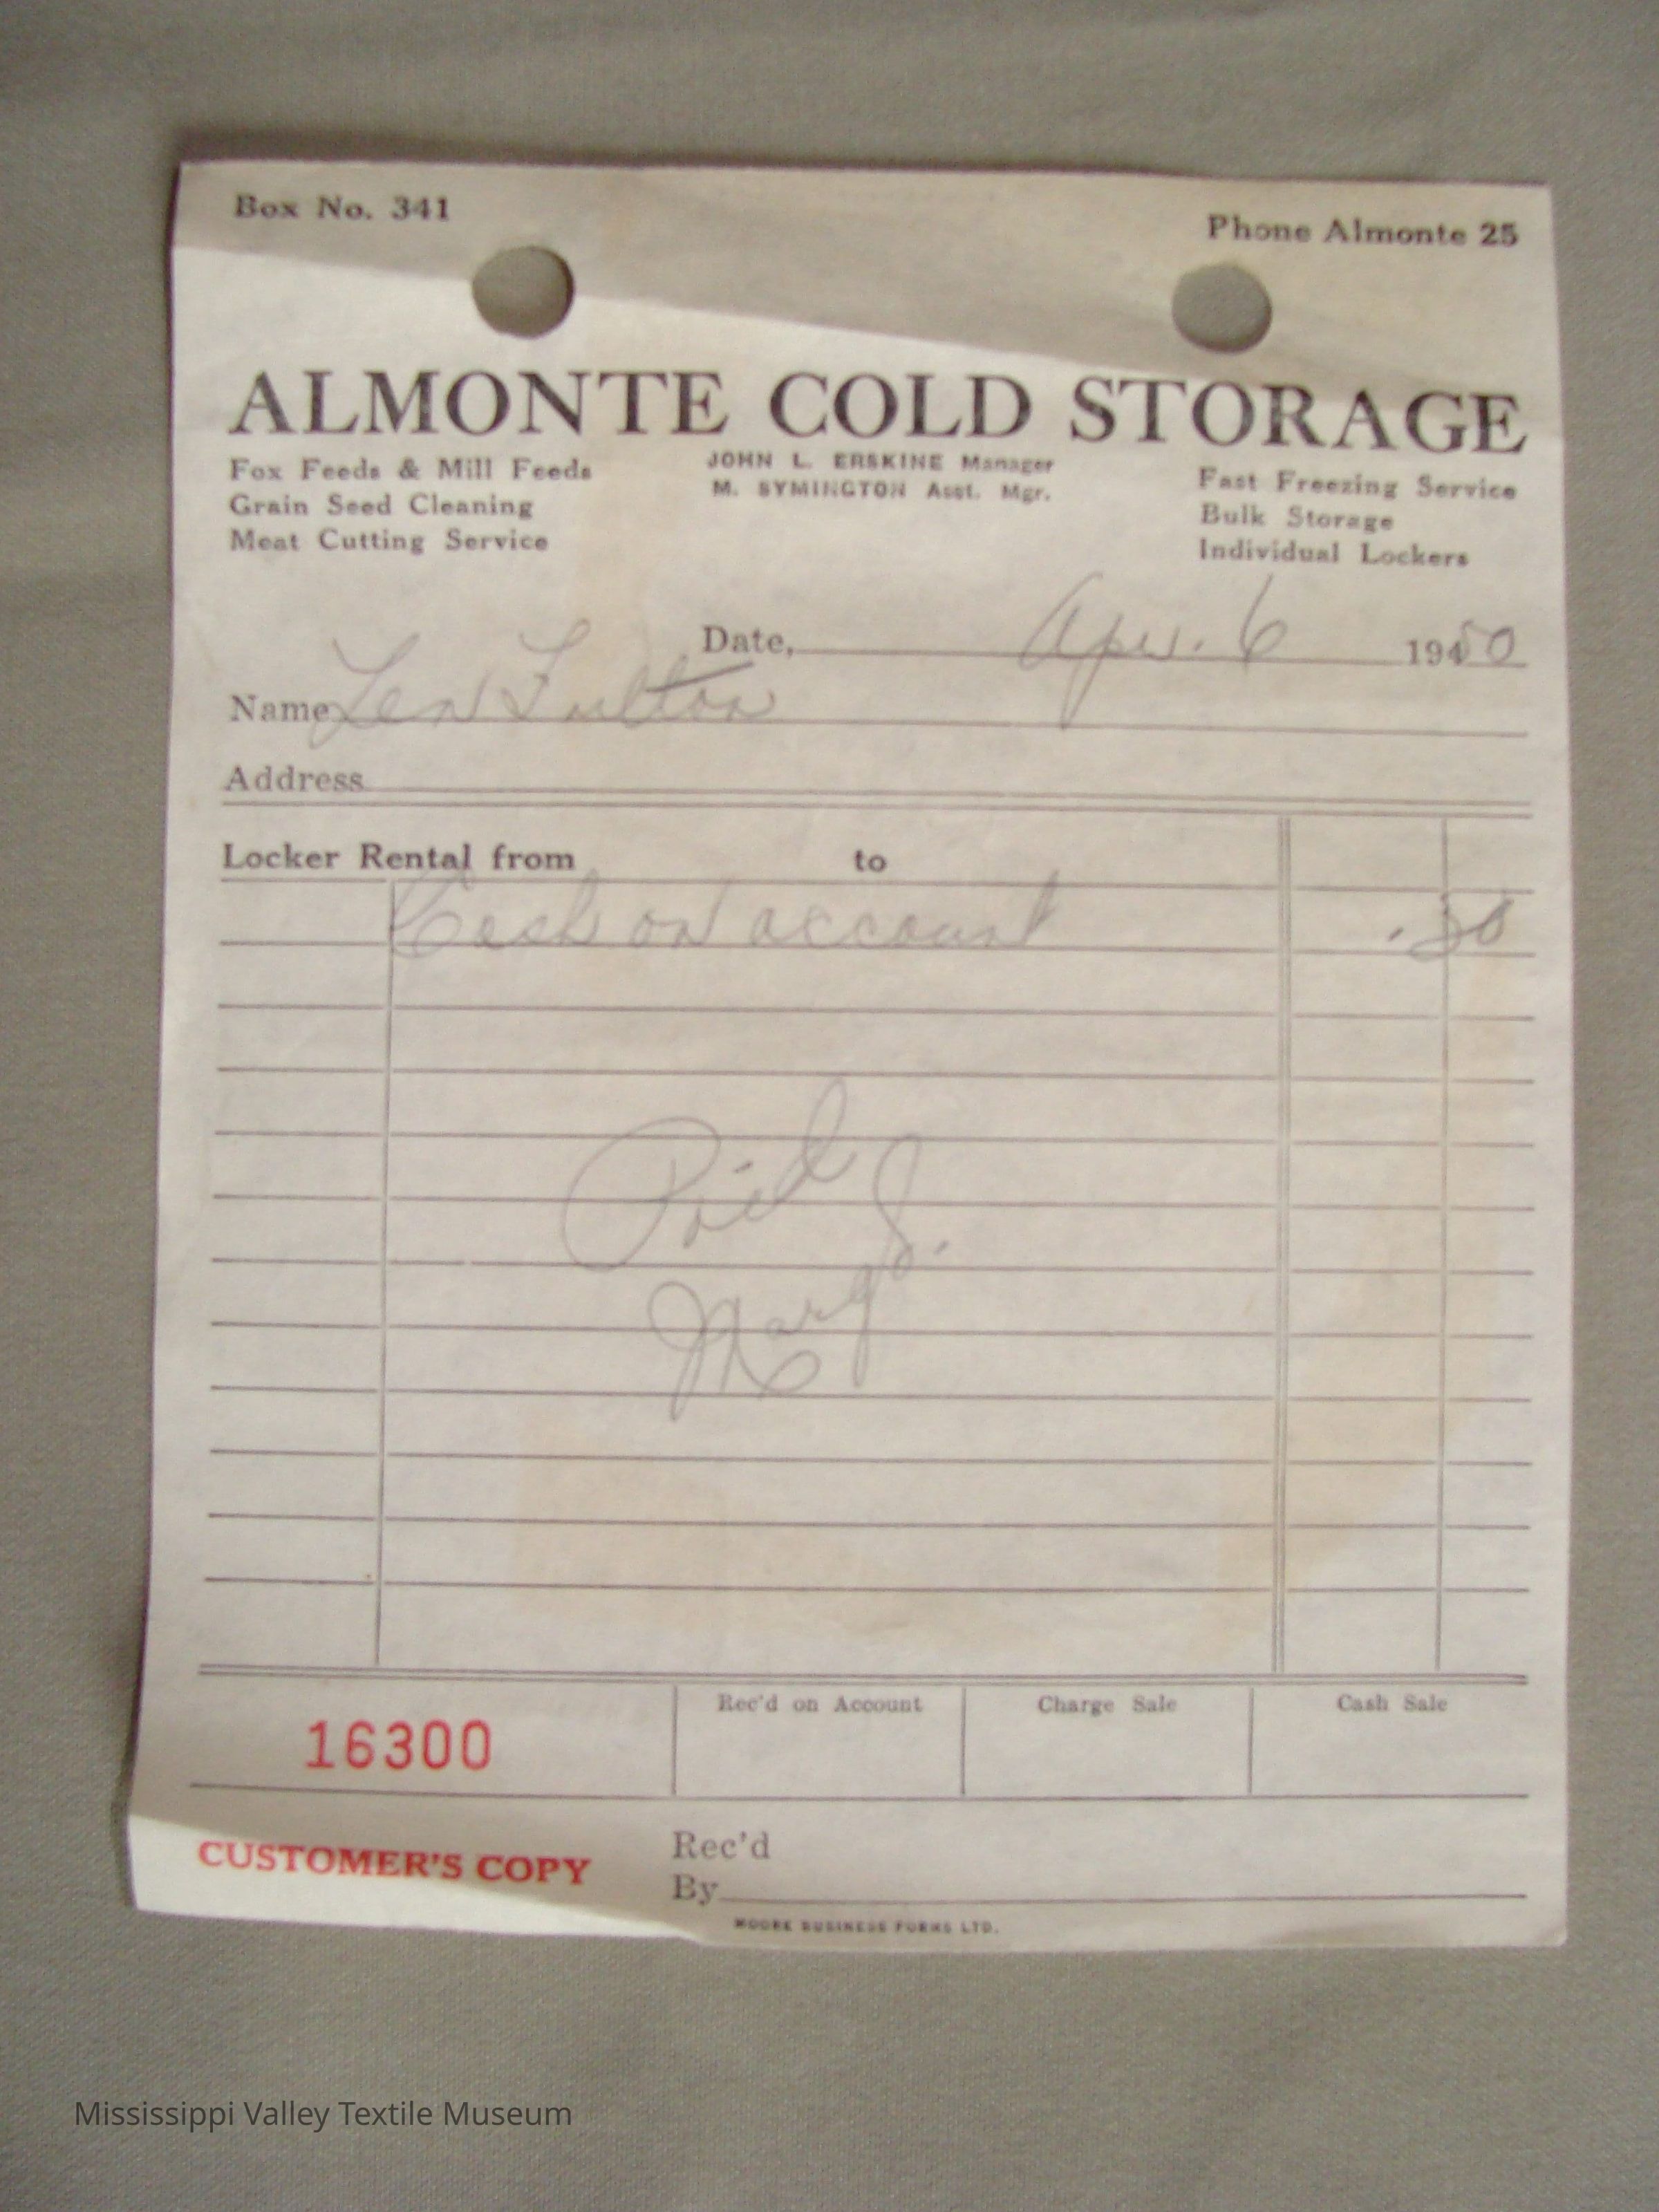 Box No. 341
Phone Almonte 25
ALMONTE COLD STORAGE
Fox Feeds & Mill Feeds
Grain Seed Cleaning
Meat Cutting Service
JOHN L. ERSKINE Manager
M. SYMINGTON Asst. Mgr.
Fast Freezing Service
Bulk Storage
Individual Lockers
Date, Apr. 6 1950
Name Len Fulton
Address
Locker Rental from to
Cash on account
Paid
Marg S.
16300
Rec'd on Account
Charge Sale
Cash Sale
CUSTOMER'S COPY
Rec'd
By
MOORE BUSINESS FORMS LTD.
Mississippi Valley Textile Museum